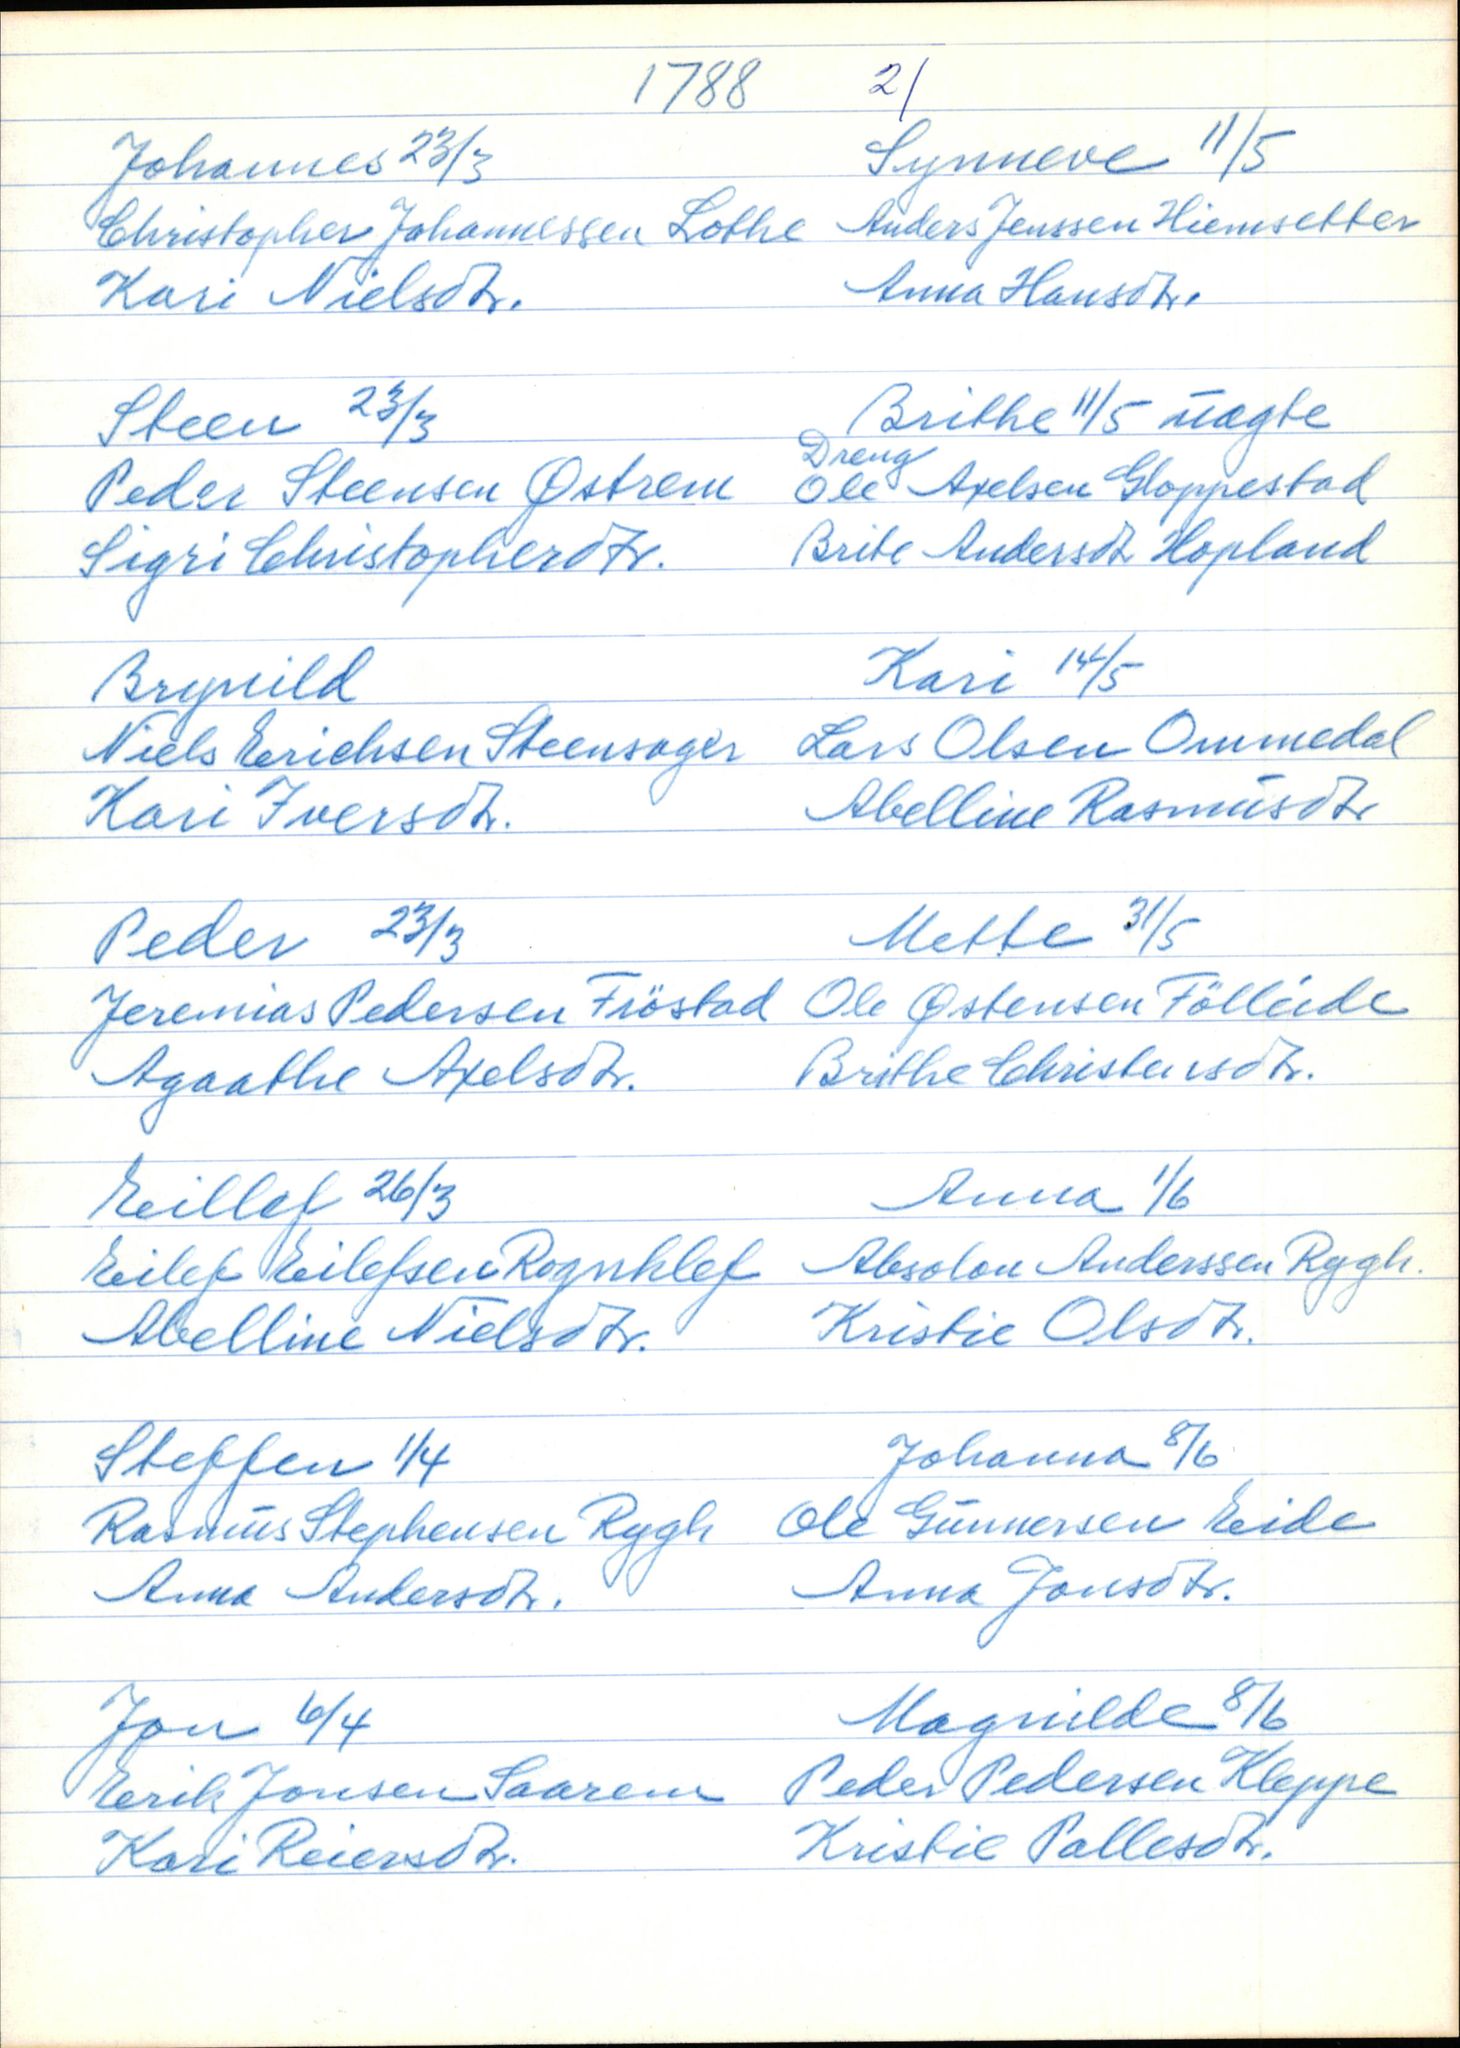 1788 21
Johannes 23/3
Christopher Johannessen Lothe
Kari Nielsdtr.
Steen 23/3
Peder Steensen Østrem
Sigri Christopherdtr.
Brynild
Niels Erichsen Steensager
Kari Iversdtr.
Peder 23/3
Jeremias Pedersen Fröstad
Agaathe Axelsdtr.
Eillef 26/3
Eilef Eilefsen Rognklef
Abelline Nielsdtr.
Steffen 1/4
Rasmus Stephensen Rygh
Anna Andersdtr.
Jon 6/4
Erik Jonsen Saarem
Kari Reiersdtr.
Synneve 11/5
Anders Jenssen Hiemsetter
Anna Hansdtr.
Brithe 11/5 uægte
Dreng
Ole Axelsen Gloppestad
Brite Andersdtr Hopland
Kari 14/5
Lars Olsen Ommedal
Abelline Rasmusdtr
Mette 31/5
Ole Østensen Fölleide
Brithe Christensdtr.
Anna 1/6
Absolon Anderssen Rygh.
Kristie Olsdtr.
Johanna 8/6
Ole Gunnersen Eide
Anna Jonsdtr.
Magnilde 8/6
Peder Pedersen Kleppe
Kristie Pallesdtr.